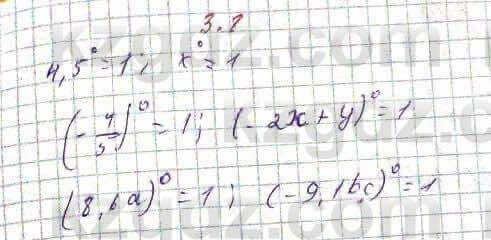 3.8
4,5⁰ = 1; x⁰ = 1
(-4/5)⁰ = 1; (-2x + y)⁰ = 1
(8,6a)⁰ = 1; (-9,1bc)⁰ = 1